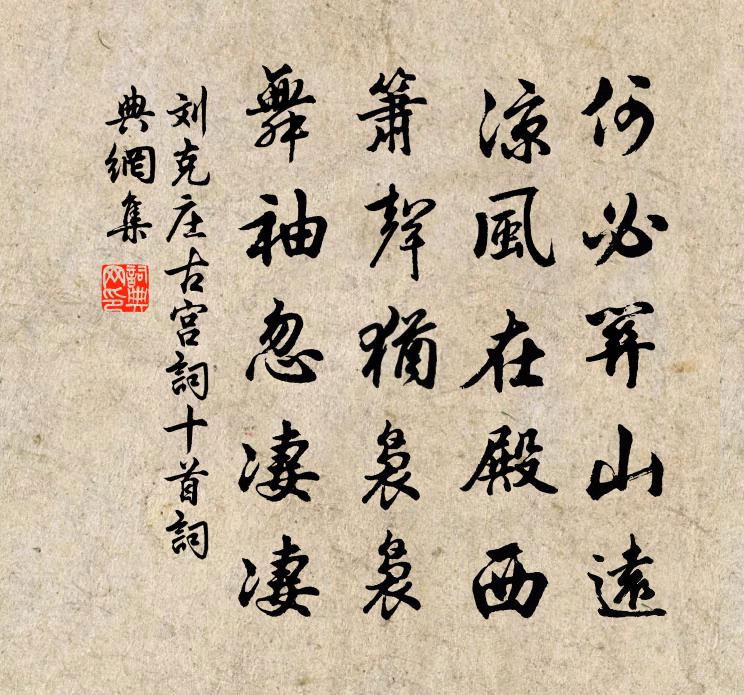 何必關山遠
涼風在殿西
簫聲猶裊裊
舞袖忽凄凄
刘克庄古宫詞十首詞
典網集
詞典
网印